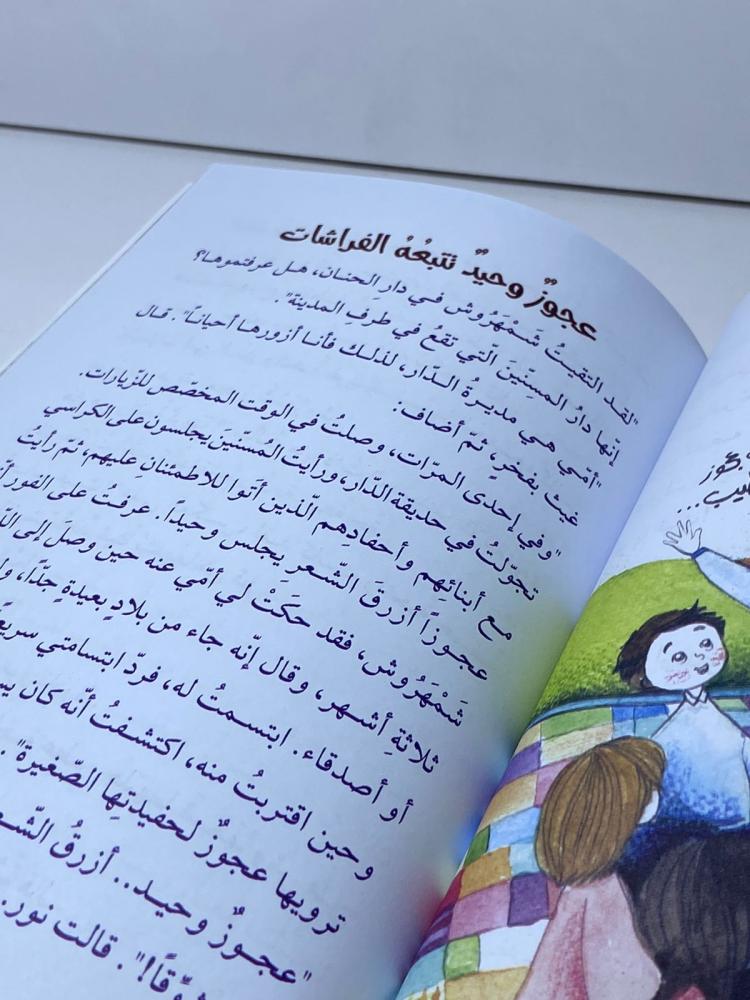 عجوزٌ وحيدٌ تتبعُهُ الفراشات
"لقد التقيتُ شَمْهَرُوش في دارِ الحنان، هل عرفتموها؟
إنّها دارُ المسنّينَ الّتي تقعُ في طرفِ المدينة".
"أمّي هي مديرةُ الدّار، لذلك فأنا أزورها أحياناً". قال
غيث بفخرٍ، ثمّ أضاف:
"وفي إحدى المرّات، وصلتُ في الوقت المخصّص للزّيارات.
تجوّلتُ في حديقة الدّار، ورأيتُ المُسنّينَ يجلسون على الكراسي
مع أبنائِهم وأحفادِهم الّذين أتَوا للاطمئنانِ عليهم، ثمّ رأيتُ
عجوزاً أزرقَ الشّعرِ يجلس وحيداً. عرفتُ على الفور
شَمْهَرُوش، فقد حكَتْ لي أمّي عنه حين وصلَ إلى
ثلاثةِ أشهر، وقال إنّه جاء من بلادٍ بعيدةٍ جدّاً،
أو أصدقاء. ابتسمتُ له، فردّ ابتسامتي
وحين اقتربتُ منه، اكتشفتُ أنّه كان
ترويها عجوزٌ لحفيدتِها الصّغيرة".
"عجوزٌ وحيد.. أزرقُ
قالت نور.